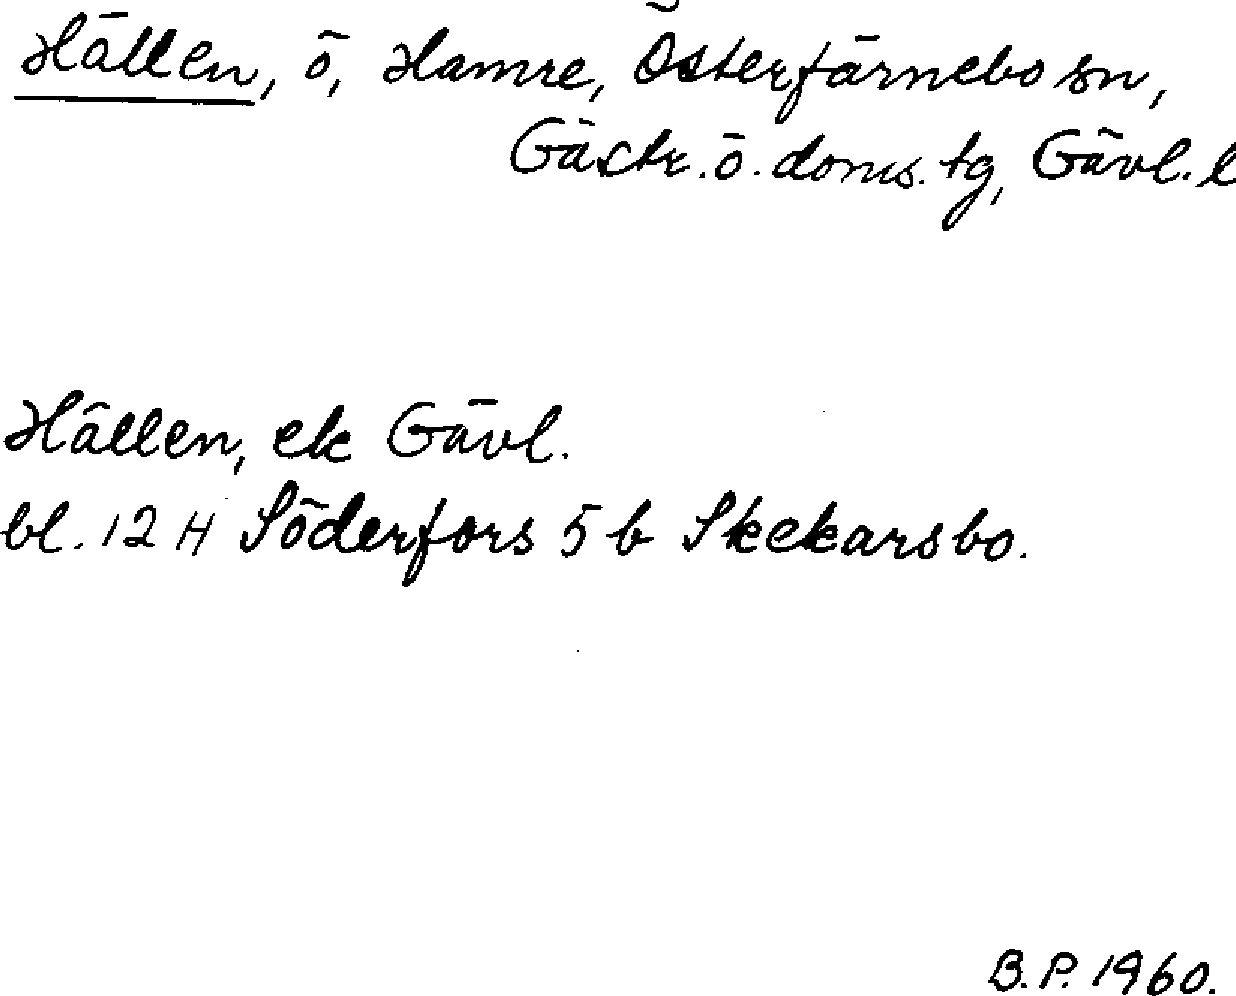 Hällen, ö, Hamre, Österfärnebo sn,
Gästr. ö. doms. tg, Gävl. l
Hällen, ek Gävl.
bl. 12 H Söderfors 5 b Skekarsbo.
B.P. 1960.